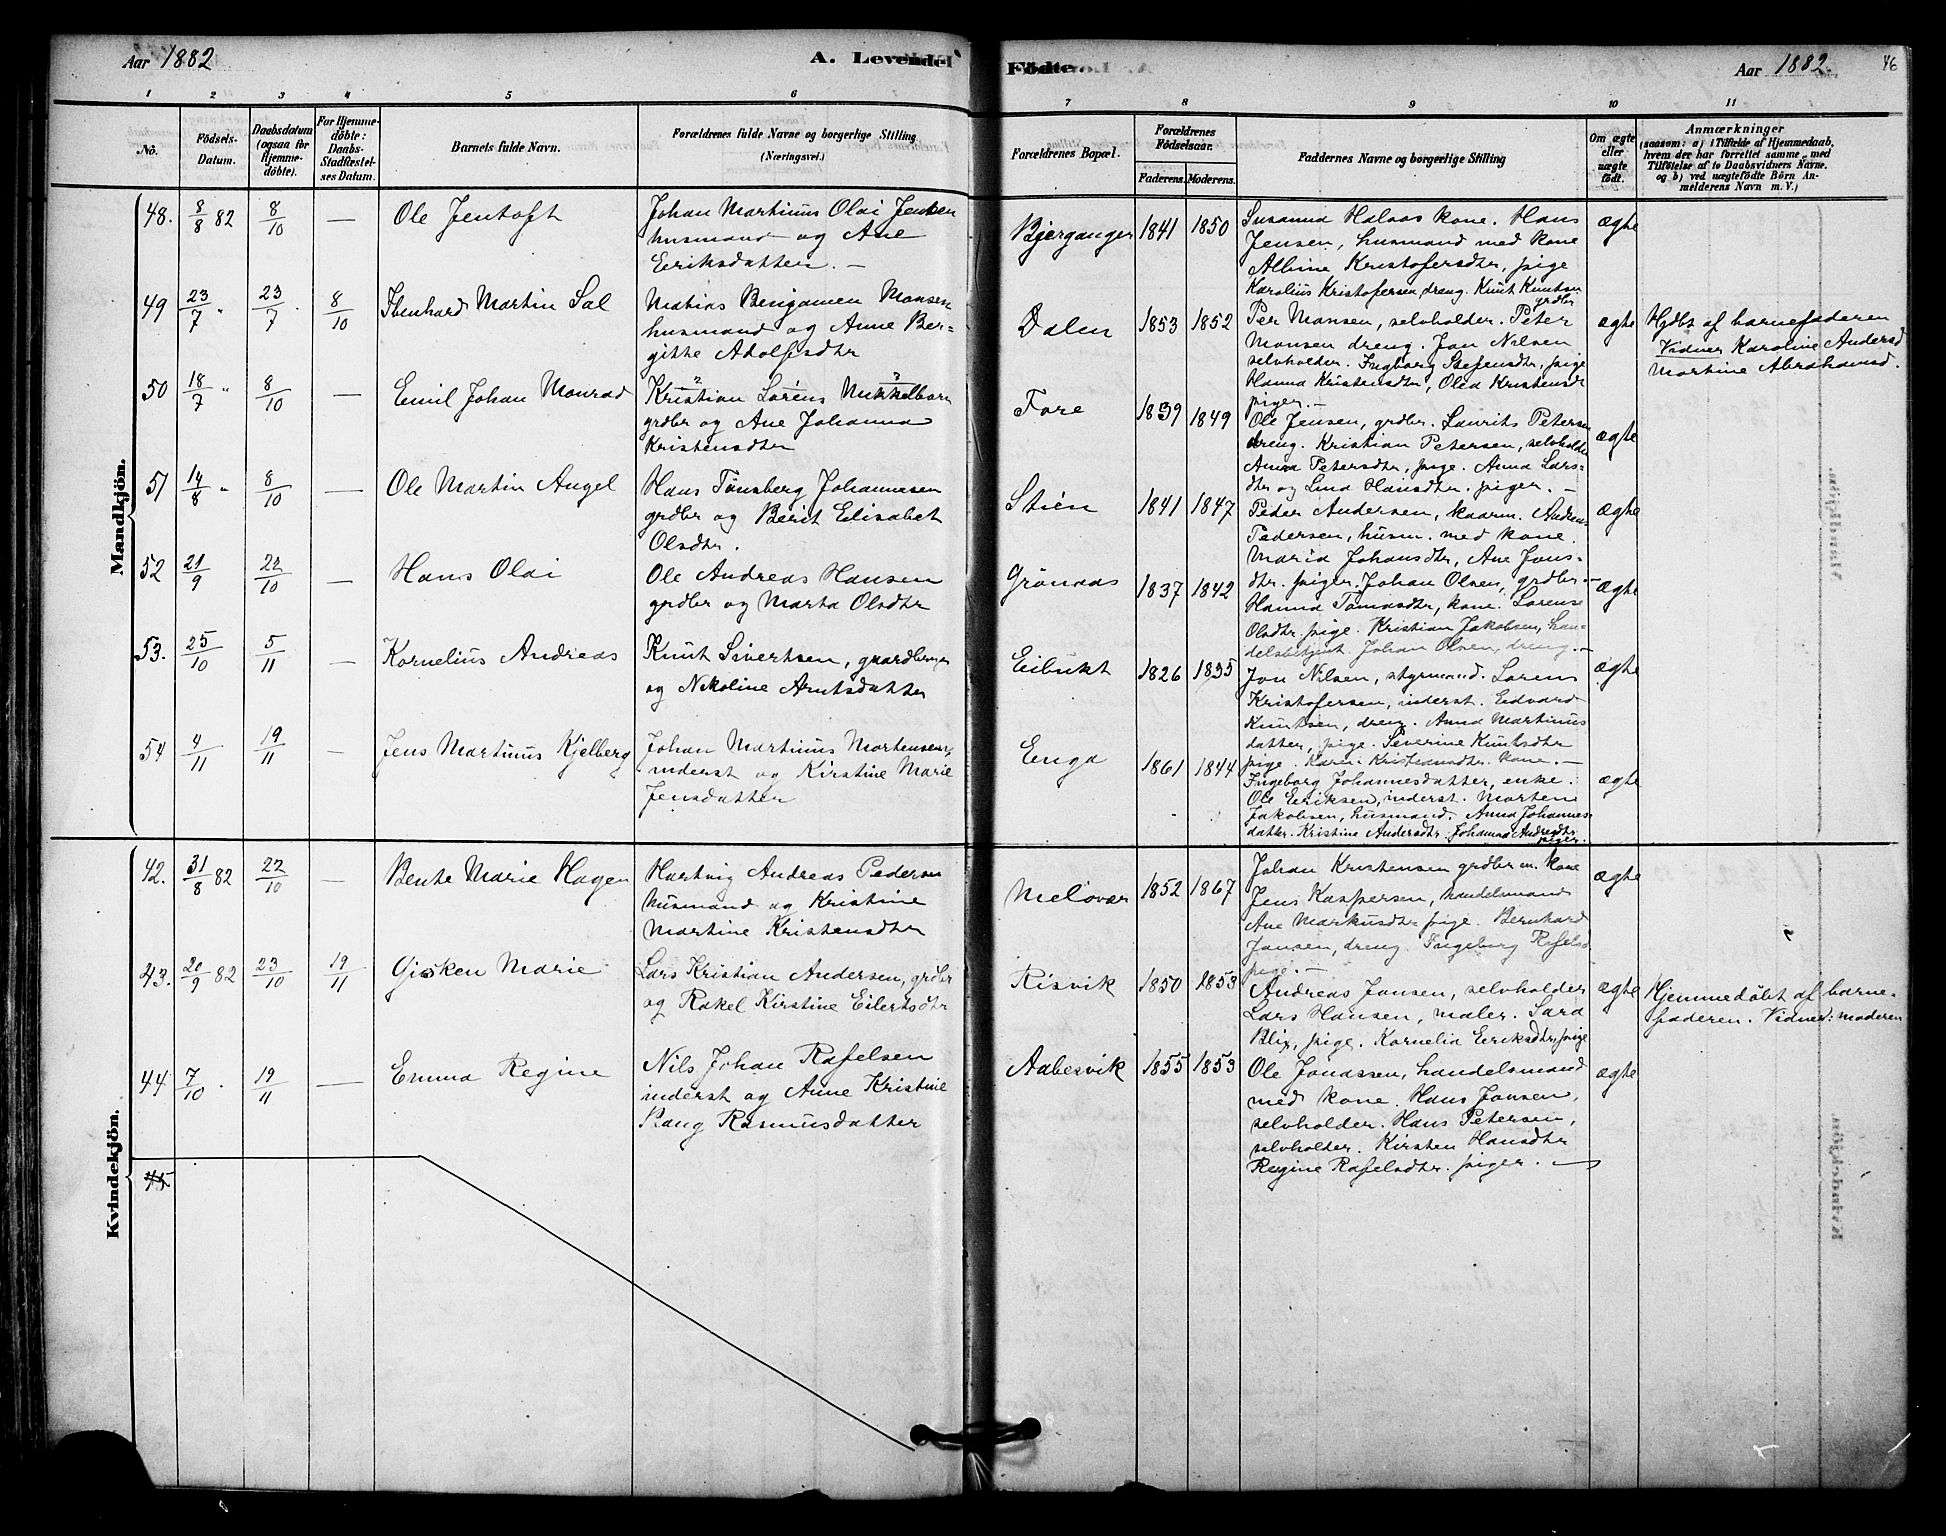 Aar 1882
A. Levendel
Födte.
Aar 1882.
46
1 2 3 4 5 6 7 8 9 10 11
No.
Födsels-
Datum.
Daabsdatum
(ogsaa for
Hjemme-
döbte).
For Hjemme-
döbte:
Daabs-
Stadfæstel-
ses Datum.
Barnets fulde Navn.
Forældrenes fulde Navne og borgerlige Stilling
(Næringsvei.)
Forældrenes Bopæl.
Forældrenes
Födselsaar.
Faderens. Moderens.
Faddernes Navne og borgerlige Stilling
Om ægte
eller
uægte
födt.
Anmærkninger
(saasom: a) i Tilfælde af Hjemmedaab,
hvem der har forrettet samme, med
Tilföielse af to Daabsvidners Navne,
og b) ved uægtefödte Börn An-
melderens Navn m. V.)
Mandkjön.
48. 8/8 82 8/10 — Ole Jentoft
Johan Martinus Olai Jensen
husmand og Ane
Eriksdatter. —
Bjerganger 1841 1850
Susanna Halaas kone. Hans
Jensen, husmand med kone
Albine Kristofersdtr, pige
Karolius Kristofersen, dreng. Knut Knutsen
grdbr
ægte
49 23/7 " 23/7 . 8/10 Ibenhard Martin Sal
Matias Benjamen Monsen
husmand og Anne Ber-
gitte Adolfsdtr
Dalen 1853 1852
Per Monsen, selvholder. Peter
Monsen dreng. Jon Nilsen
selvholder. Ingborg Stefensdtr, pige
Hanna Kristensdtr, Olea Kristensdtr
piger. —
ægte
Hjdbt af barnefaderen
Vidner Karoline Andersd
Martine Abrahamsd.
50 18/7 " 8/10 — Emil Johan Monrad
Kristian Lorens Mikkelborg
grdbr og Ane Johanna
Kristensdtr
Fore 1839 1849
Ole Jensen, grdbr. Laurits Petersen
dreng. Kristian Petersen, selvholder
Anna Petersdtr, pige. Anna Lars-
dtr og Lina Hansdtr. piger. —
ægte
51 14/8 " 8/10 — Ole Martin Angel
Hans Tønsberg Johannesen
grdbr og Berit Elisabet
Olsdtr.
Stien 1841 1847
Peder Andersen, kaarm. Andreas
Pedersen, husm. med kone.
Maria Johansdtr, Ane Jons-
dtr. piger. Johan Olsen, grdbr. —
ægte
52 21/9 22/10 — Hans Olai
Ole Andreas Hansen
grdbr og Marta Olsdtr
Grønaas 1837 1842
Hanna Tomasdtr, kone. Lorense
Olsdtr. pige. Kristian Jakobsen, han-
delsbetjent. Johan Olsen, dreng. —
ægte
53. 25/10 5/11 — Kornelius Andreas
Knut Sivertsen, gaardbruger
og Nikoline Arntsdatter
Eibukt 1826 1835
Jon Nilsen, styrmand. Lorens
Kristofersen, inderst. Edvard
Knutsen, dreng. Anna Martinus
datter, pige. Severine Knutsdtr
pige. Karen Kristiansdtr. kone. —
ægte
54 4/11 19/11 — Jens Martinus Kjelberg
Johan Martinus Mortensen,
inderst og Kirstine Marie
Jensdatter
Enga 1861 1844
Ingeborg Johannesdatter, enke.
Ole Eriksen, inderst. Morten
Jakobsen, husmand. Anna Johannes
datter. Kristine Andersdtr. Johanna Andreasdtr
piger.
ægte
Kvindekjön.
42. 31/8 82 22/10 — Bente Marie Hagen
Hartvig Andreas Pedersen
husmand og Kristine
Martine Kristensdtr
Meløvær 1852 1867
Johan Kristensen grdbr m. kone
Jens Kaspersen, handelsmand
Ane Markusdtr pige. Bernhard
Jansen, dreng. Ingeborg Rafelsd
pige. —
ægte
43. 20/9 82 23/10 19/11 Gjøken Marie
Lars Kristian Andersen, grdbr
og Rakel Kirstine Eilertsdtr
Risvik 1850 1853
Andreas Jansen, selvholder
Lars Hansen, maler. Sara
Blix, pige. Kornelia Eriksdtr, pige
ægte
Hjemmedøbt af barne-
faderen. Vidner: moderen
44 7/10 . 19/11 — Emma Regine
Nils Johan Rafelsen
inderst og Anne Kristine
Bang Rasmusdatter
Aabesvik 1855 1853
Ole Jonassen, handelsmand
med kone. Hans Jonsen,
selvholder. Hans Petersen,
selvholder. Kirsten Hansdtr
Regine Rafelsdtr. piger. —
ægte
45